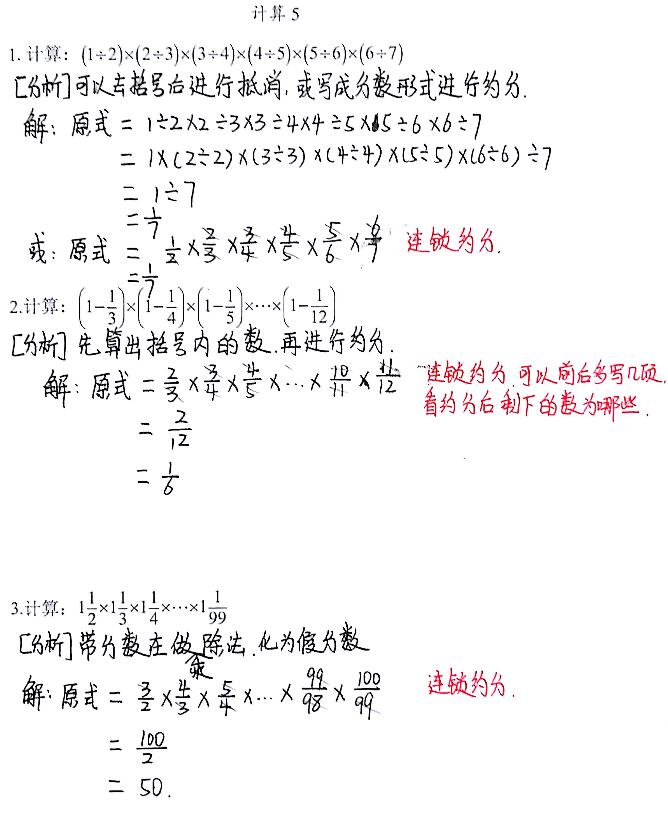 计算 5
1. 计算：(1÷2)×(2÷3)×(3÷4)×(4÷5)×(5÷6)×(6÷7)
[分析]可以去括号后进行抵消,或写成分数形式进行约分.
解: 原式 = 1÷2×2÷3×3÷4×4÷5×5÷6×6÷7
= 1×(2÷2)×(3÷3)×(4÷4)×(5÷5)×(6÷6)÷7
= 1÷7
= 1/7
或: 原式 = 1/2 × 2/3 × 3/4 × 4/5 × 5/6 × 6/7 连锁约分.
= 1/7
2.计算：(1-1/3)×(1-1/4)×(1-1/5)×⋯×(1-1/12)
[分析] 先算出括号内的数.再进行约分.
解: 原式 = 2/3 × 3/4 × 4/5 × ⋯ × 10/11 × 11/12 连锁约分,可以前后多写几项,
看约分后剩下的数为哪些.
= 2/12
= 1/6
3.计算：1 1/2×1 1/3×1 1/4×⋯×1 1/99
[分析]带分数在做乘除法.化为假分数
解: 原式 = 3/2 × 4/3 × 5/4 × ⋯ × 99/98 × 100/99 连锁约分.
= 100/2
= 50.